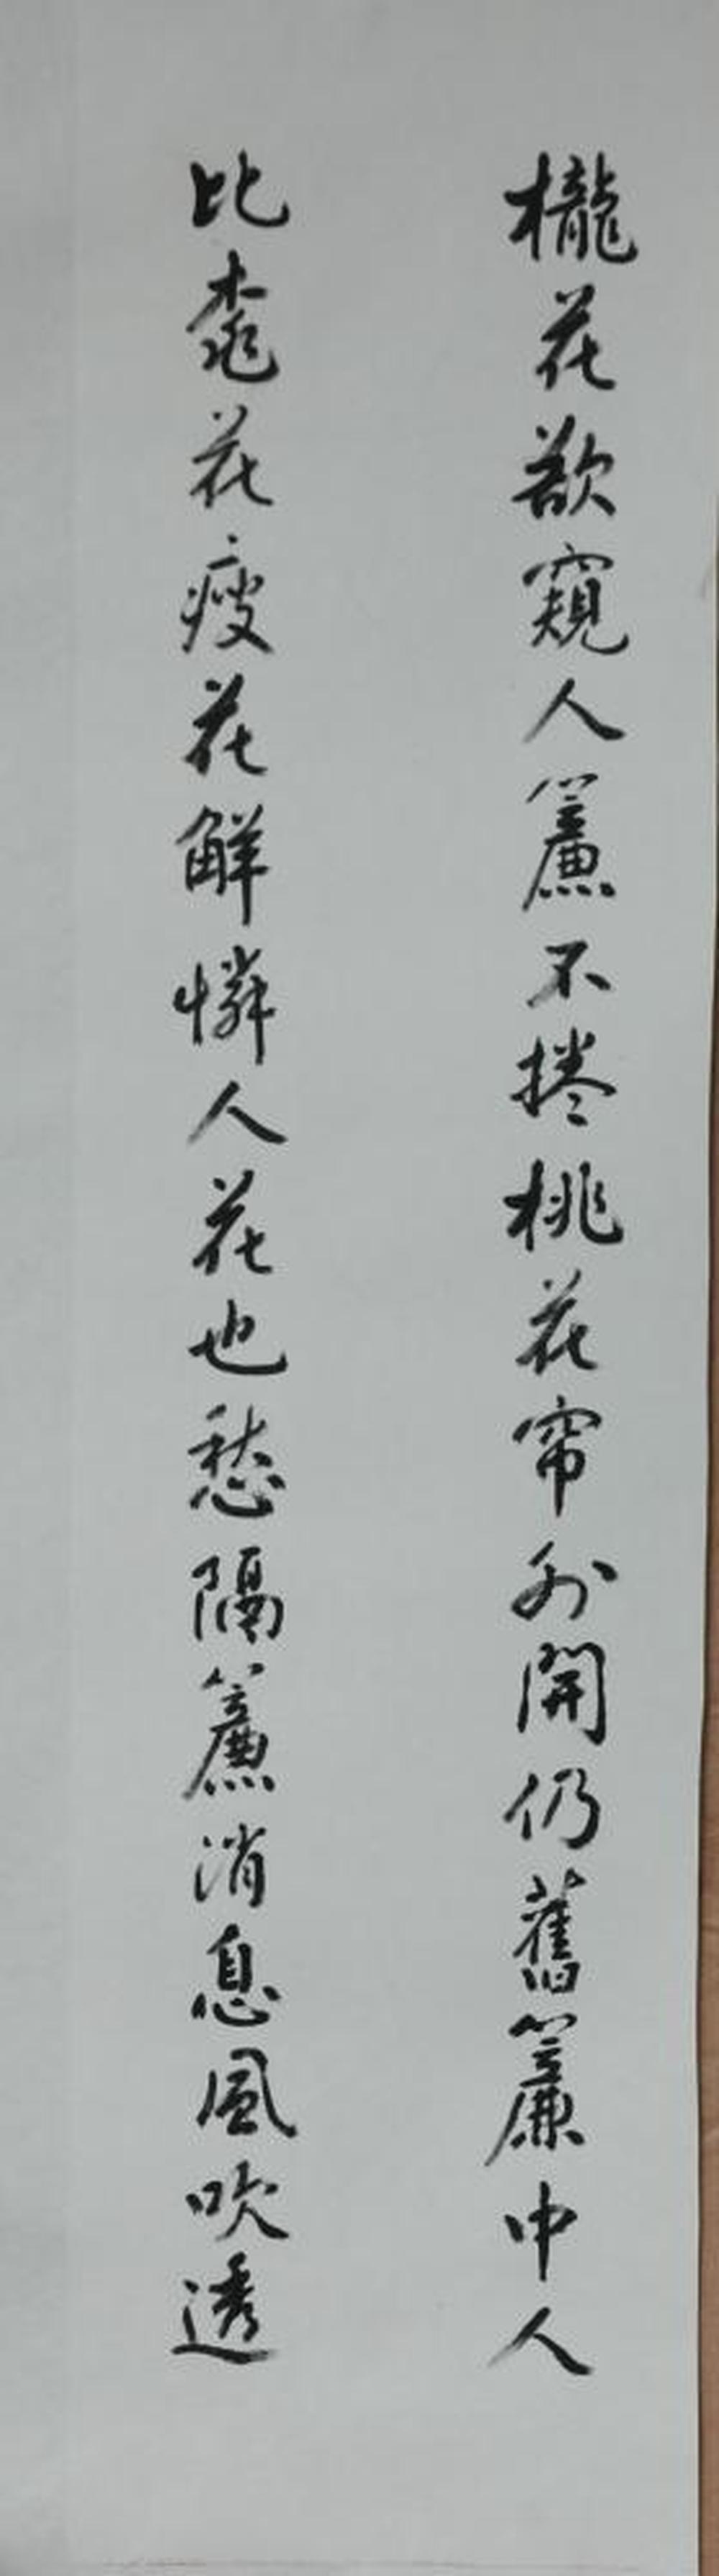 櫳花欲窺人簾不捲桃花帘外開仍舊簾中人
比桃花瘦花解憐人花也愁隔簾消息風吹透